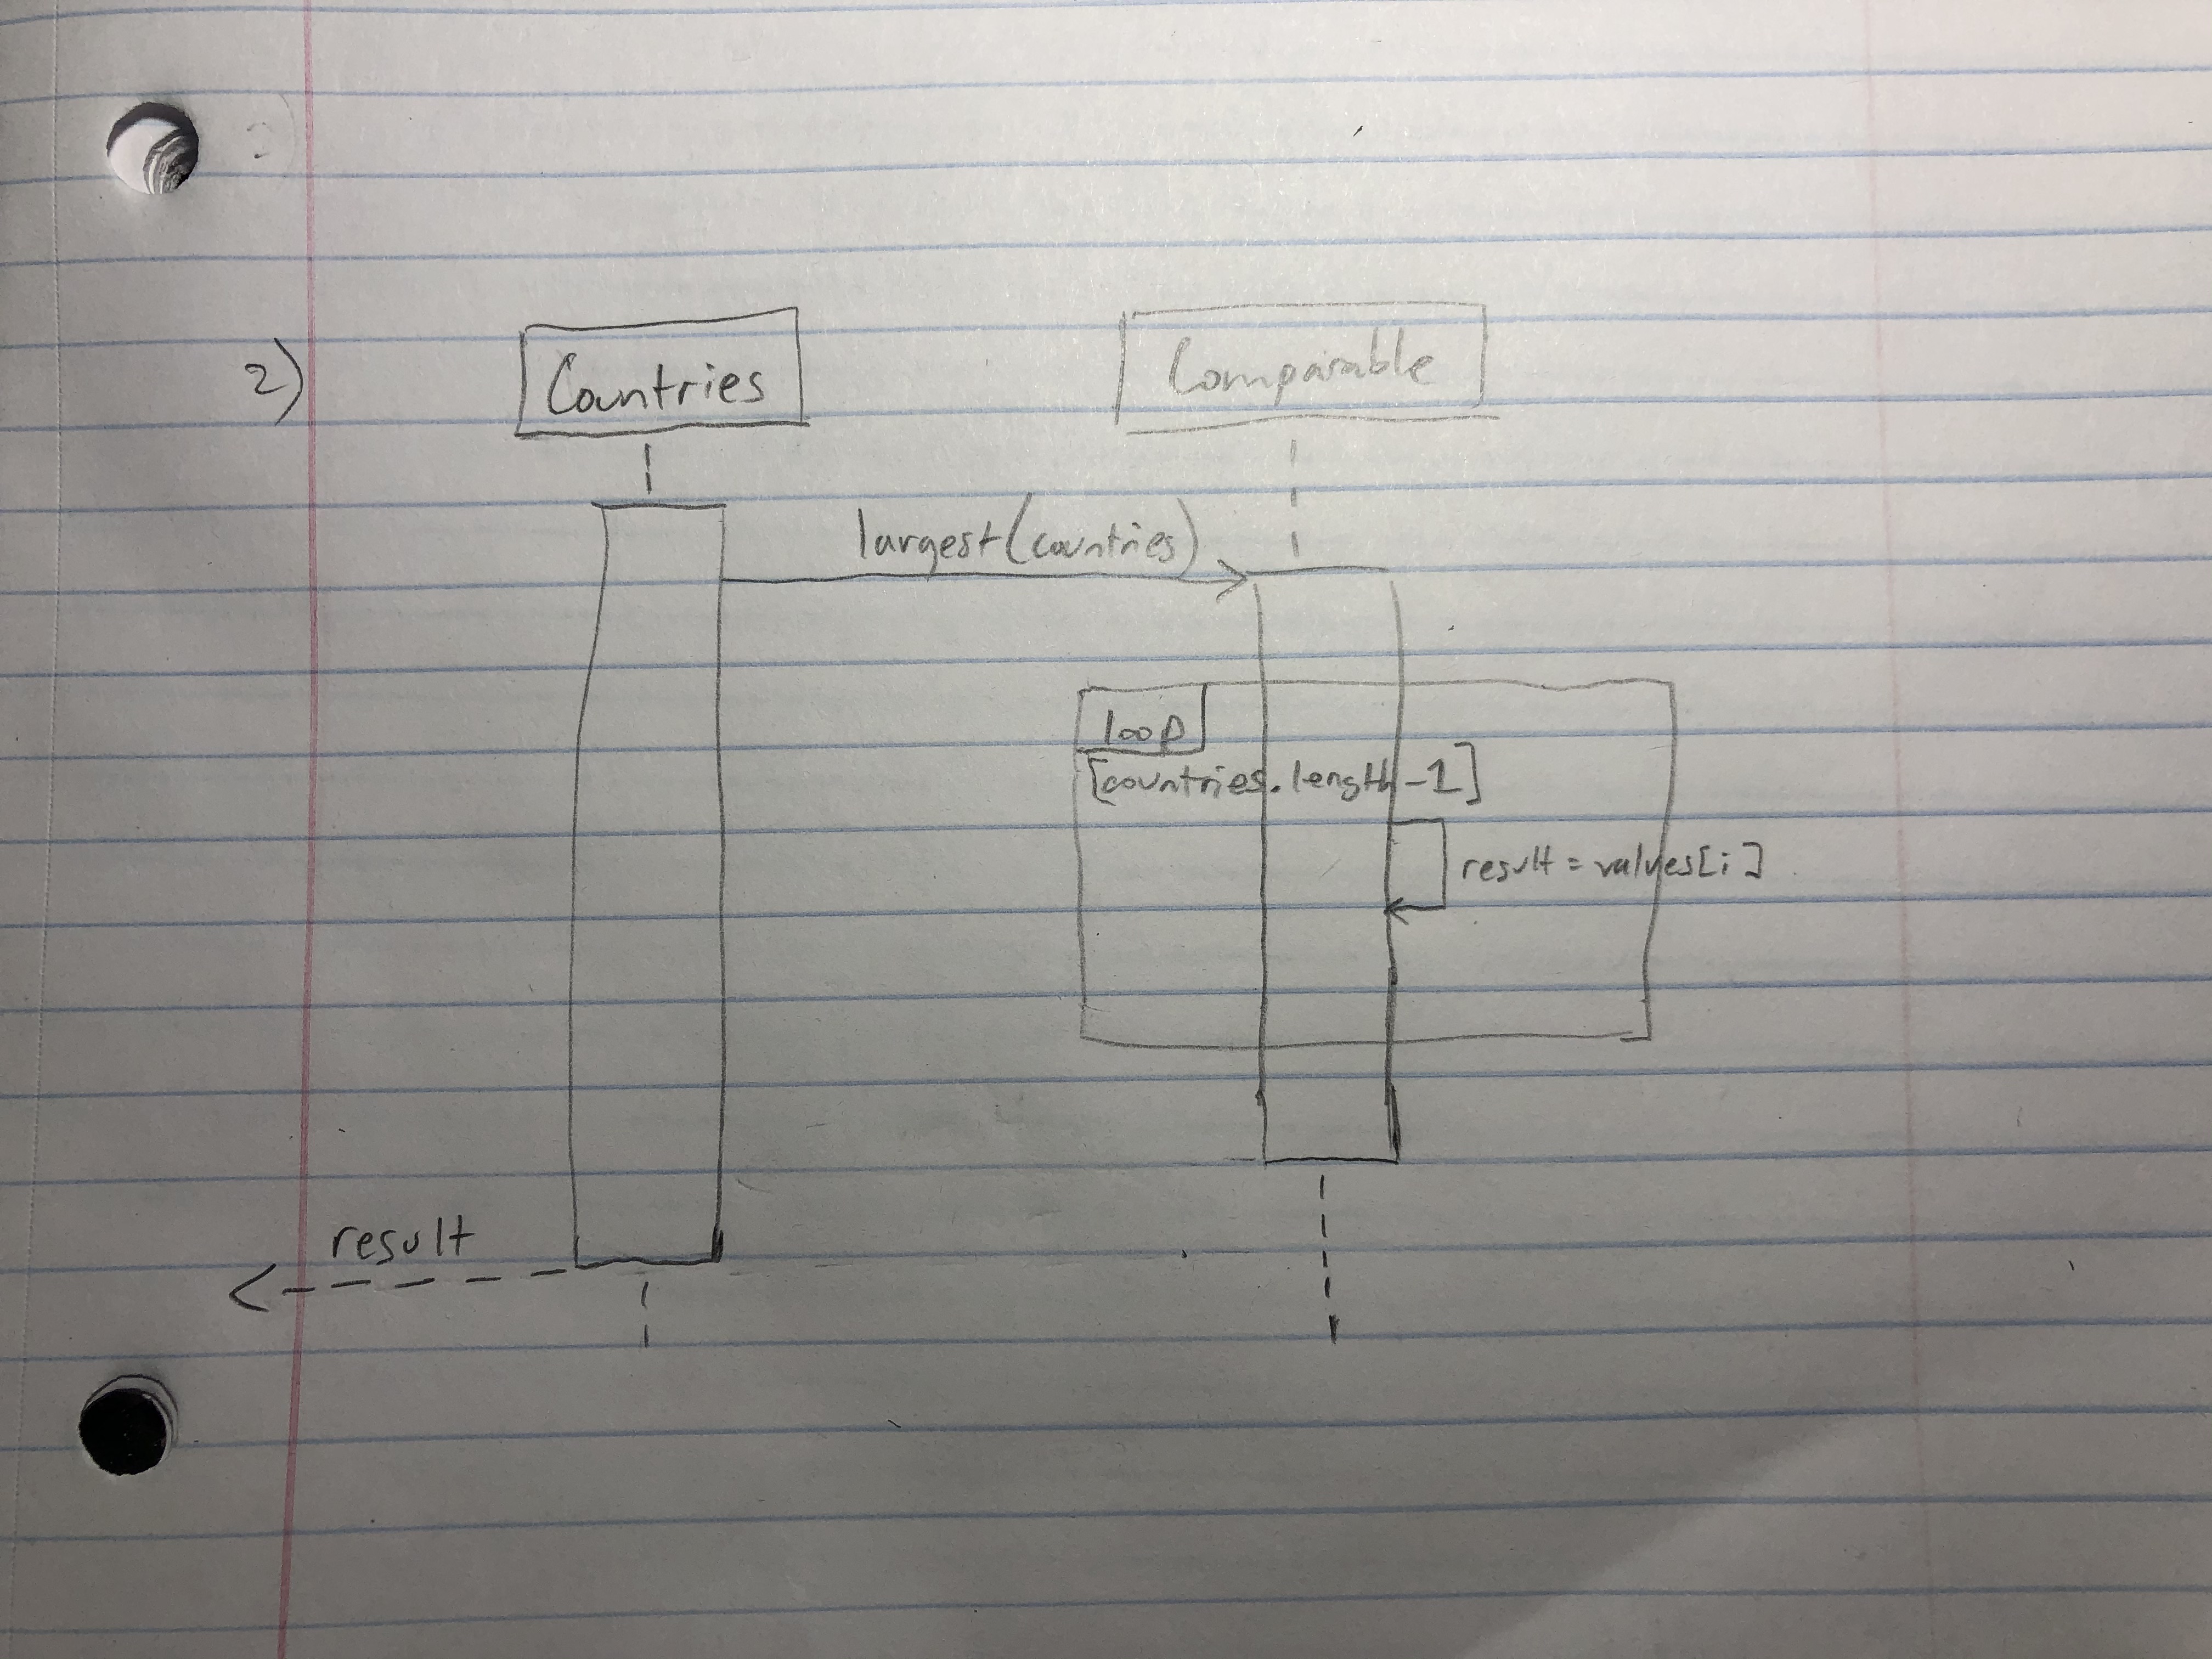 2)
Countries
Comparable
largest(countries)
loop
[countries.length-1]
result = values[i]
result